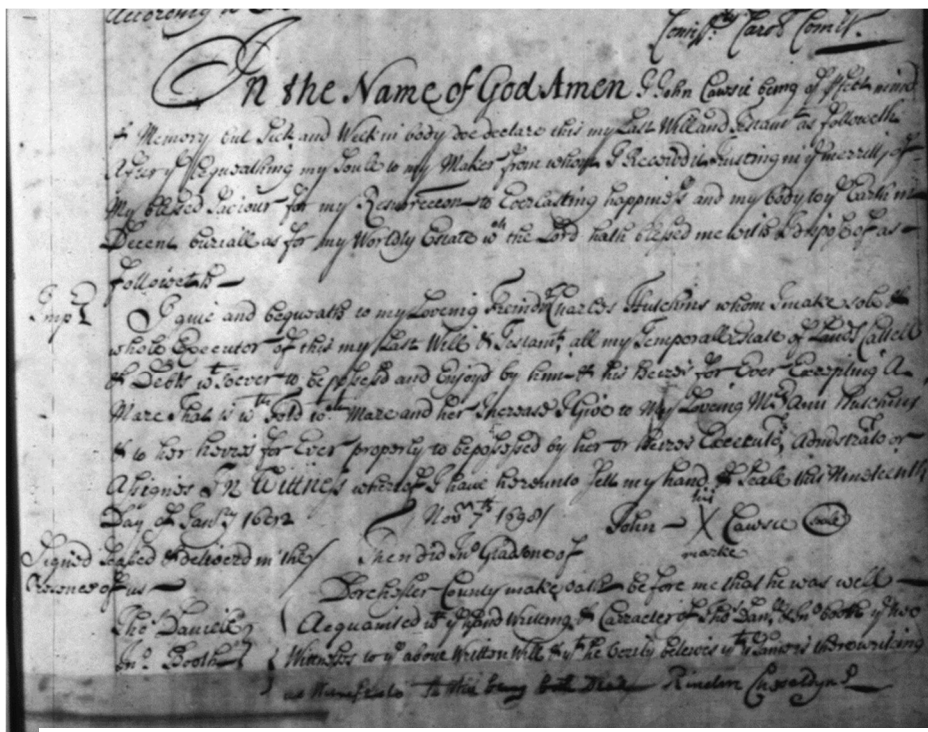 According to
Comiss.ry Carob Comit.
In the Name of God Amen I John Cawsie being of pfect mind
& Memory but Sick and Week in body doe declare this my Last Will and Testamt as followeth
After ye Bequeathing my Soule to my Maker from whom I Recevd it Trusting in ye merritts of
My blessed Saviour for my Resurrection to Everlasting happiness and my body to ye Earth in
Decent buriall as for my Worldly Estate wch the Lord hath blessed me with I dispose of as
followeth
Imps I give and bequeath to my Loveing Freind Charles Hutchins whom I make sole &
whole Executor of this my Last Will & Testamt all my Temporall Estate of Lands Cattell
& Debts wtsoever to be possesd and Enjoyd by him & his heires for Ever Excepting A
Mare That is wth Fold wch Mare and her Increase I Give to My Loveing Mrs Ann Hutchins
& to her heires for Ever properly to be possessed by her or heires Executors Adminstrators or
Assignes In Wittness whereof I have hereunto Sett my hand & Seale this Nineteenth
Day of Janry 1692 Novr 7th 1698 John his X marke Cawsie Seale
Signed Sealed & deliverd in the Then did Jno Gladson of
Presence of us Dorchester County make oath before me that he was well
Tho: Daniell Acquainted wth ye hand Writing & Carracter of Thos Danll & Jno Booth ye two
Jno Booth Wittnesses to ye above Written Will & yt he verily beleives ye Same is their owne writing
as Wittnesses to this being both Dead Kinelm Cheseldyn